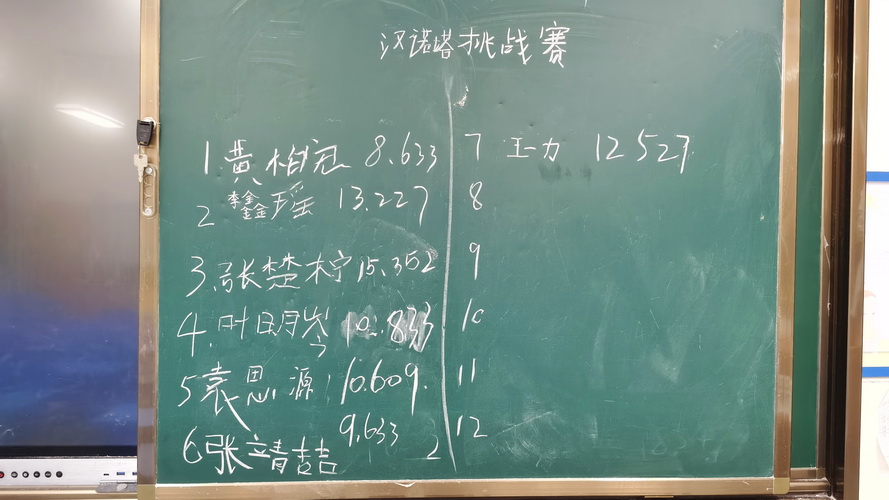 汉诺塔挑战赛
1 黄柏冠 8.633
2 李鑫瑶 13.227
3.张楚柠 15.352
4.叶明岑 10.833
5 袁思源 10.609.
6 张立靖喆 9.633 2
7 王一力 12 527
8
9
10
11
12